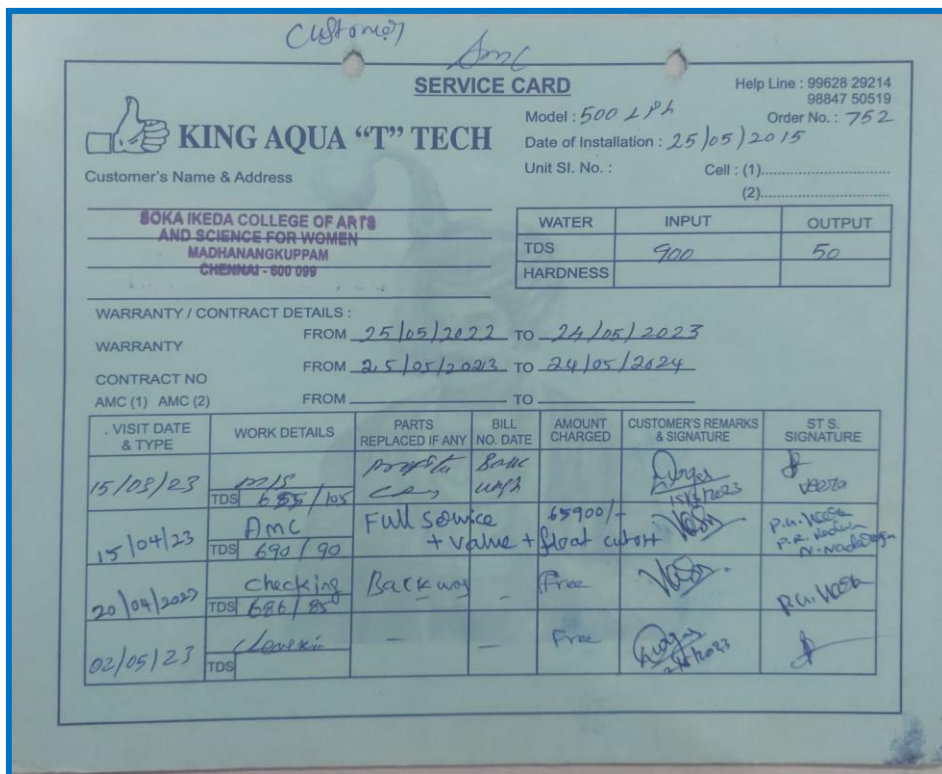 Customer
Amc
SERVICE CARD
Help Line : 99628 29214
98847 50519
Model : 500 LPh
Order No. : 752
KING AQUA “T” TECH
Date of Installation : 25/05/2015
Unit Sl. No. :
Cell : (1)
(2)
Customer's Name & Address
SOKA IKEDA COLLEGE OF ARTS
AND SCIENCE FOR WOMEN
MADHANANGKUPPAM
CHENNAI - 600 099
WATER INPUT OUTPUT
TDS 900 50
HARDNESS
WARRANTY / CONTRACT DETAILS :
WARRANTY
FROM 25/05/2022 TO 24/05/2023
FROM 25/05/2023 TO 24/05/2024
CONTRACT NO
AMC (1) AMC (2)
FROM TO
VISIT DATE & TYPE
WORK DETAILS
PARTS REPLACED IF ANY
BILL NO. DATE
AMOUNT CHARGED
CUSTOMER'S REMARKS & SIGNATURE
ST S. SIGNATURE
15/03/23
TDS 655/105
15/3/2023
Veera
15/04/23
Amc
TDS 690/90
Full Service
+ Valve + float cutoff
65900/-
20/04/2023
Checking
TDS 686/85
Back
-
Free
02/05/23
TDS
-
-
Free